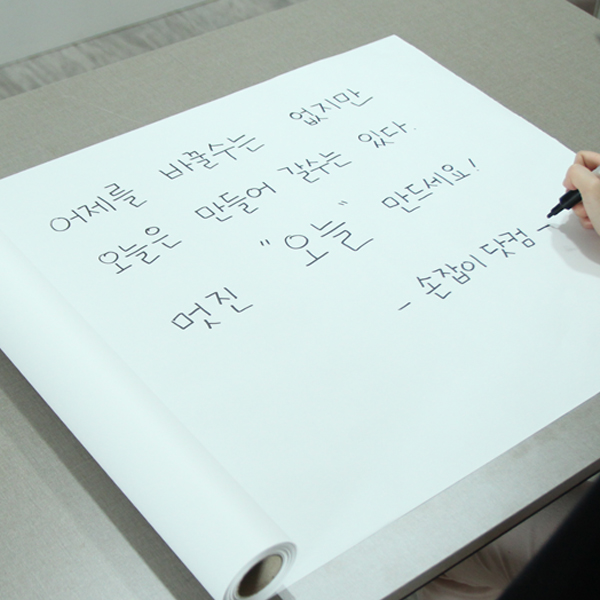 어제를 바꿀수는 없지만
오늘은 만들어 갈수는 있다.
멋진 "오늘" 만드세요!
- 손잡이 닷컴 -